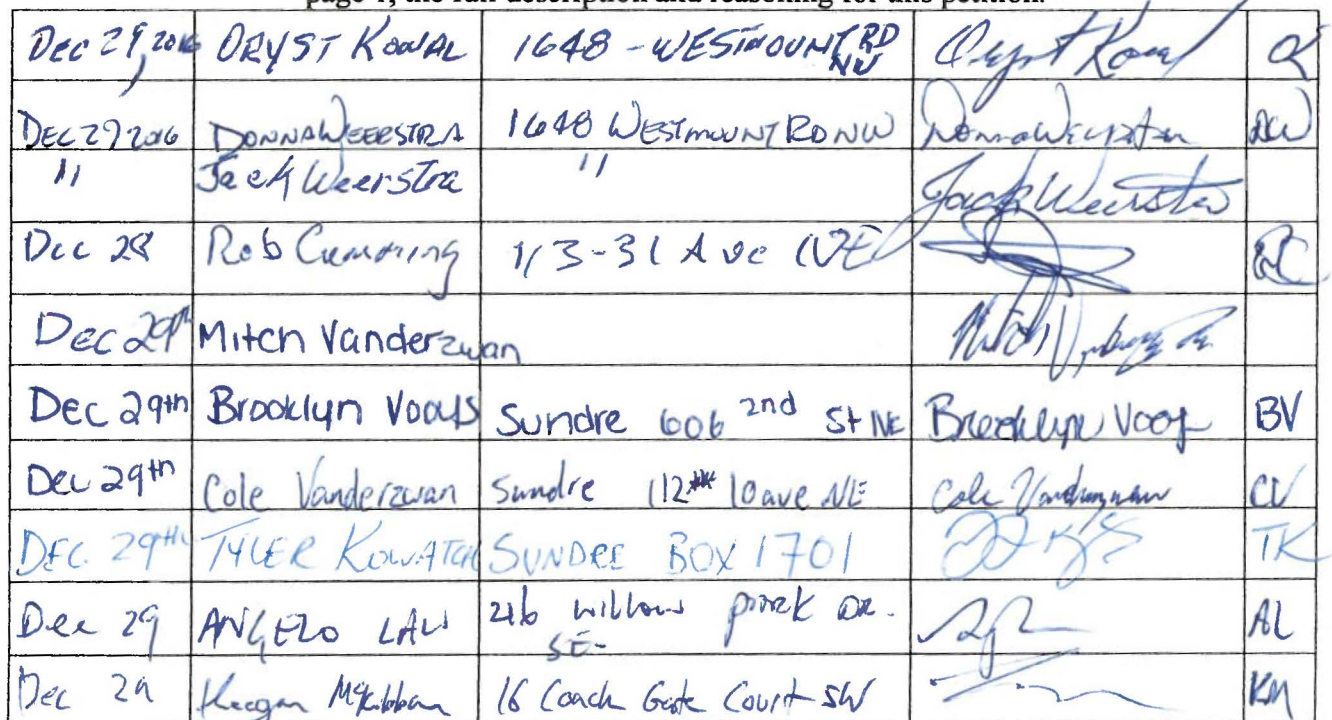 page 1, the full description and reasoning for this petition.
Dec 29, 2016 ORYST KOWAL 1648 - WESTMOUNT RD NW Oryst Kowal OK
DEC 29 2016 DONNA WEERSTRA 1648 WESTMOUNT RD NW Donna Weerstra DW
" Jack Weerstra " Jack Weerstra
Dec 28 Rob Cumming 113-31 Ave NE RC
Dec 29th Mitch Vanderzwan
Dec 29th Brooklyn Sundre 606 2nd St NE Brooklyn BV
Dec 29th Cole Vanderzwan Sundre 112 10 ave NE Cole Vanderzwan CV
DEC. 29TH TYLER KOWATCH SUNDRE BOX 1701 TK
Dec 29 ANGELO LAW 216 willow park DR. SE- AL
Dec 29 Keegan McKibban 16 Coach Gate Court SW KM